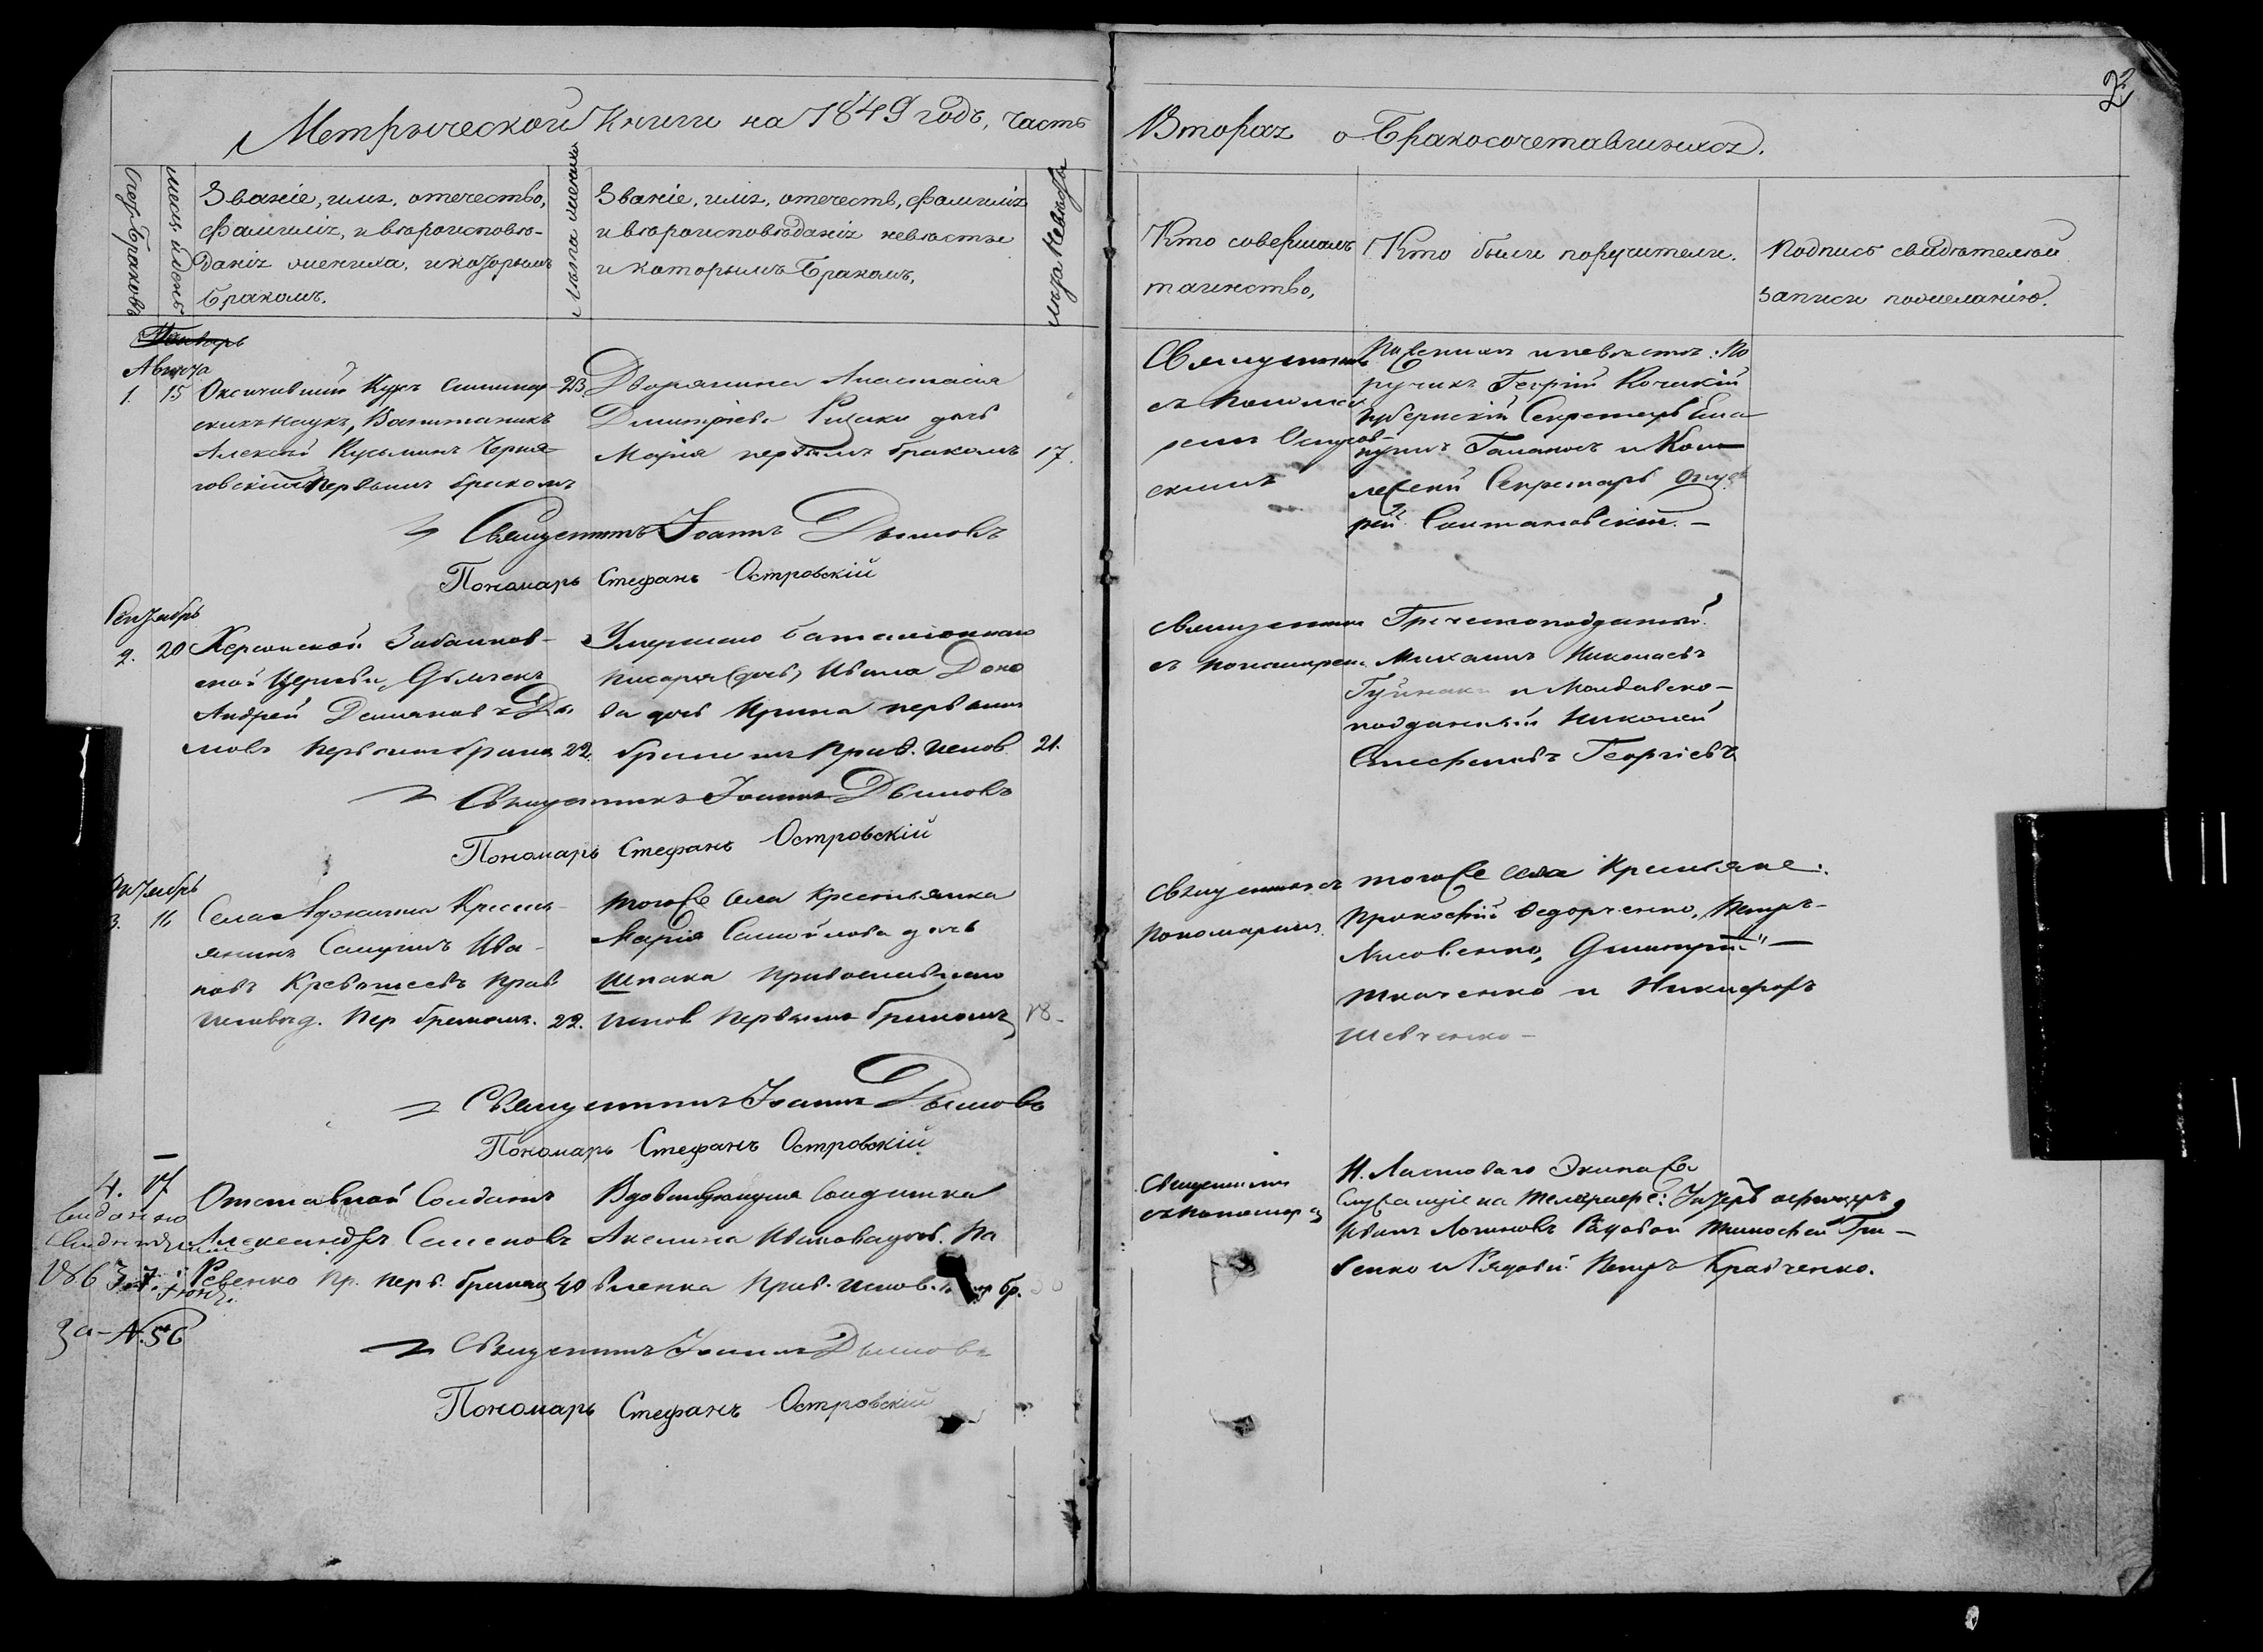 2
Метрической Книги на 1849 годъ, часть
Вторая о Бракосочетавшихся.
Счетъ Браковъ
мѣсяцъ и день
Званіе, имя, отечество,
фамилія, и вѣроисповѣ-
данія жениха, и которымъ
бракомъ.
Лѣта жениха
Званіе, имя, отечеств, фамилія
и вѣроисповѣданія невѣсты
и которымъ бракомъ.
Лѣта Невѣсты
Кто совершалъ
таинство,
Кто были поручители.
Подпись свидѣтелей
записи пожеланію.
Августа
1. 15 Окончившій Курсъ Семинар-
скихъ Наукъ, Воспитаникъ
Алексѣй Кузьминъ Черня-
ховскій Первымъ бракомъ
23.
Дворянина Анастасія
Дмитріева Ризаки дочь
Марія первымъ бракомъ 17.
Священникъ
съ Понома-
ремъ Остров-
скимъ
По женихѣ и невѣстѣ: По
ручикъ Георгій
Губернскій Секретарь
и Кол-
лежскій Секретарь
рей
Священникъ Іоаннъ Дымовъ
Пономарь Стефанъ Островскій
Сентябрь
2. 20 Херсонской
ской Церкви Дьячекъ
Андрей Демяновъ Ды
мовъ Первымъ брако 22.
Умершаго баталіоннаго
писаря (дочь) Ивана
ва дочь Ирина первымъ
бракомъ Прав. Испов. 21.
Священникъ
съ пономаремъ
Греческоподданый
Михаилъ Николаевъ
и Молдавско-
подданный Николай
Стефановъ Георгіевъ
Священникъ Іоаннъ Дымовъ
Пономарь Стефанъ Островскій
Октябрь
3. 16 Села Крестъ-
янинъ Самуилъ Ива-
новъ Прав
Исповѣд. Пер бракомъ. 22.
тогоже села Крестьянка
Марія Самойлова дочь
Шпака Православнаго
Испов Первымъ бракомъ 18.
Священникъ съ
Пономаремъ.
тогоже села Крестьяне:
Прокофій Федорченко, Петръ
Лисовенко, Дмитрій
Ткаченко и Никифоръ
Шевченко
Священникъ Іоаннъ Дымовъ
Пономарь Стефанъ Островскій.
4. 17 Отставной Солдатъ
Александръ Семеновъ
Ревенко Пр. перв. бракомъ 40
Вдовствующая солдатка
Акелина Иванова доч. Па
вленка Прав. Испов. бр.
Священникъ
съ Пономаремъ
Н. Ластоваго Экипажа
Служащіе на Телеграфе: Унтеръ офицеръ
Иванъ Логиновъ Рядовой Тимофей Гри-
ценко и Рядовой Петръ Кравченко.
1863. 7. Іюня
За № 56
Священникъ Іоаннъ Дымовъ
Пономарь Стефанъ Островскій